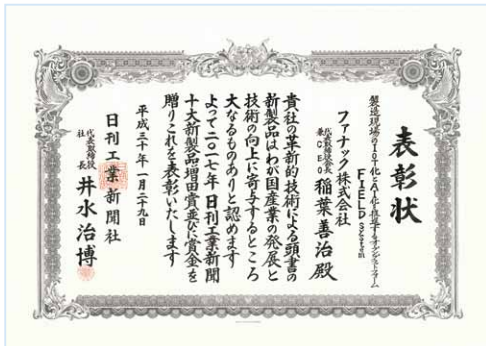 表彰状
製造現場のIoT化とAI化を推進するオープンプラットフォーム
FIELD system
ファナック株式会社
代表取締役会長
兼CEO 稲葉善治 殿
貴社の革新的技術による頭書の
新製品はわが国産業の発展と
技術の向上に寄与するところ
大なるものありと認めます
よって二〇一七年日刊工業新聞
十大新製品増田賞並びに賞金を
贈りこれを表彰いたします
平成三十年一月二十九日
日刊工業新聞社
代表取締役
社長 井水治博